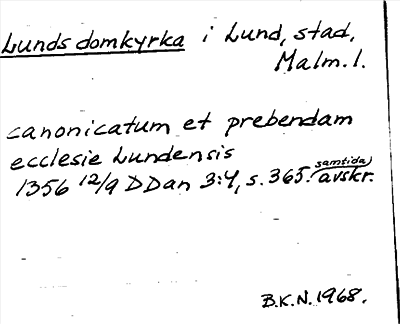 Lunds domkyrka i Lund, stad,
Malm. l.
canonicatum et prebendam
ecclesie Lundensis
1356 12/9 DDan 3:4, s. 365. (samtida) avskr.
B.K.N. 1968.